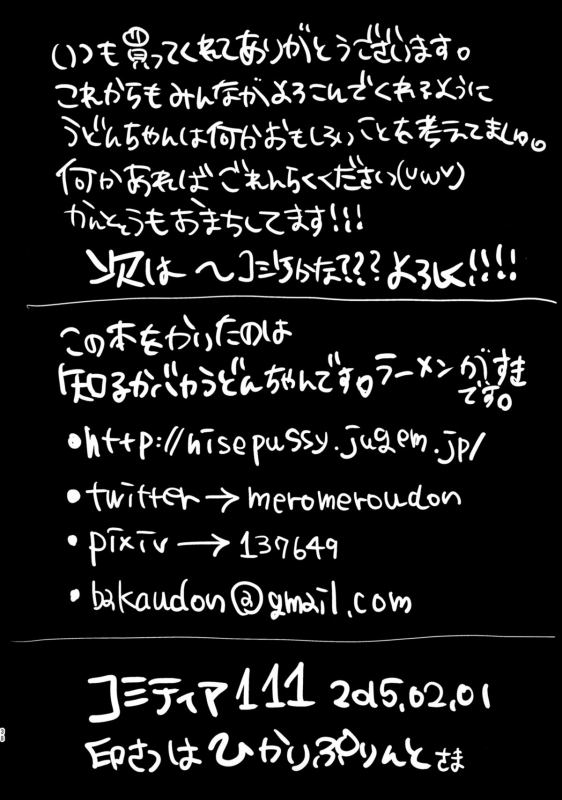 いつも買ってくれてありがとうございます。
これからもみんながよろこんでくれるように
うどんちゃんは何かおもしろいことを考えてましゅ。
何かあればごれんらくください(UωU)
かんそうもおまちしてます!!!
次は〜コミケかな???よろしく!!!!
この本をかいたのは
知るかバカうどんちゃんです。ラーメンがすき
です。
•http://nisepussy.jugem.jp/
•twitter→meromeroudon
•pixiv→137649
•bakaudon@gmail.com
コミティア111 2015.02.01
印さつはひかりぷりんとさま